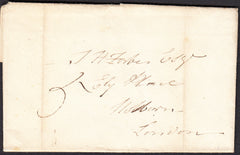 J H Forbes Esqr
Ely Place
Holborn
London